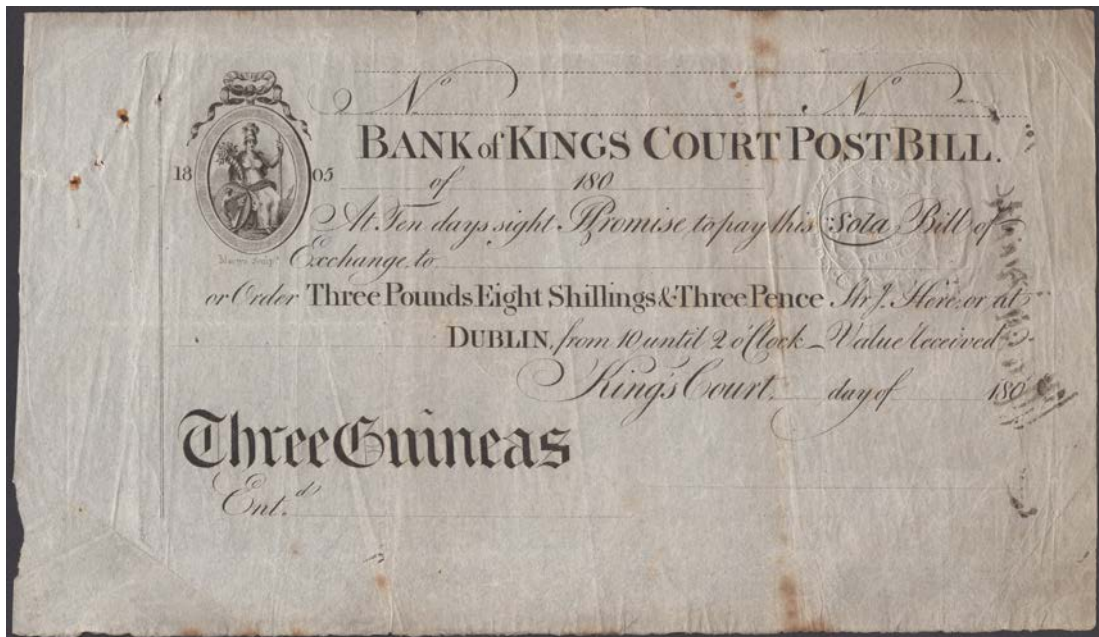 No No
BANK of KINGS COURT POST BILL.
1805
of 180
At Ten days sight I Promise to pay this Sola Bill of
Exchange to
or Order Three Pounds Eight Shillings & Three Pence Str J. Here, or at
DUBLIN, from 10 until 2 o'Clock _ Value received
King's Court. day of 180
Three Guineas
Ent.d